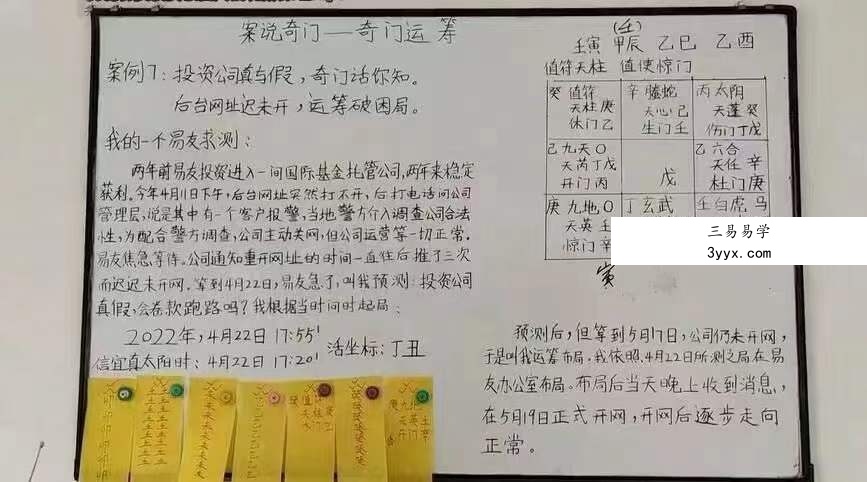 案说奇门——奇门运筹
案例7：投资公司真与假，奇门话你知。
后台网址迟未开，运筹破困局。
我的一个易友求测：
两年前易友投资进入一间国际基金托管公司，两年来稳定
获利。今年4月11日下午，后台网址突然打不开，后打电话问公司
管理层，说是其中有一个客户报警，当地警方介入调查公司合法
性，为配合警方调查，公司主动关网，但公司运营等一切正常。
易友焦急等待。公司通知重开网址的时间一直往后推了三次
而迟迟未开网。等到4月22日，易友急了，叫我预测：投资公司
真假，会卷款跑路吗？我根据当时间时起局：
2022年，4月22日17:55′
信宜真太阳时：4月22日17:20′
活坐标：丁丑
(壬)
壬寅 甲辰 乙巳 乙酉
值符天柱 值使惊门
癸 值符 辛 螣蛇 丙 太阴
天柱庚 天心己 天蓬癸
休门乙 生门壬 伤门丁戊
己 九天〇 乙 六合
天芮丁戊 天任辛
开门丙 戊 杜门庚
庚 九地〇 丁 玄武 壬 白虎 马
天英壬
惊门辛
寅
三易易学
3yyx.com
预测后，但等到5月17日，公司仍未开网，
于是叫我运筹布局。我依照4月22日所测之局在易
友办公室布局。布局后当天晚上收到消息，
在5月19日正式开网，开网后逐步走向
正常。